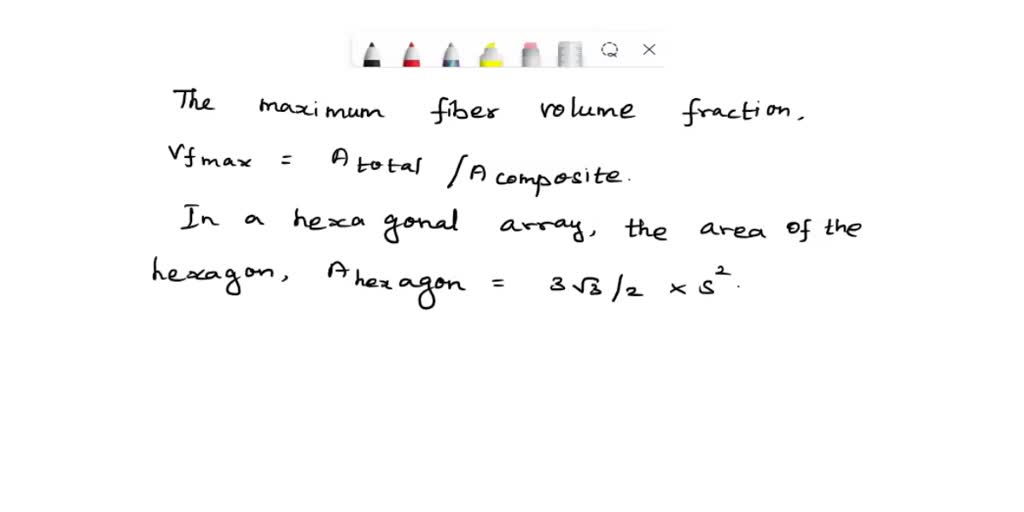 The maximum fiber volume fraction,
Vfmax = A total / A composite.
In a hexagonal array, the area of the
hexagon, A hexagon = 3√3/2 × s².